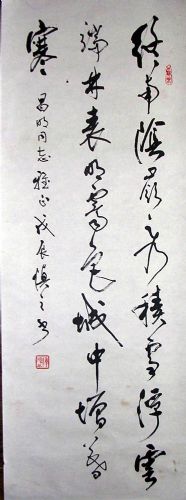 终南陰嶺秀積雪浮雲
端林表明霽色城中增暮
寒
昌明同志雅正戊辰慎之书